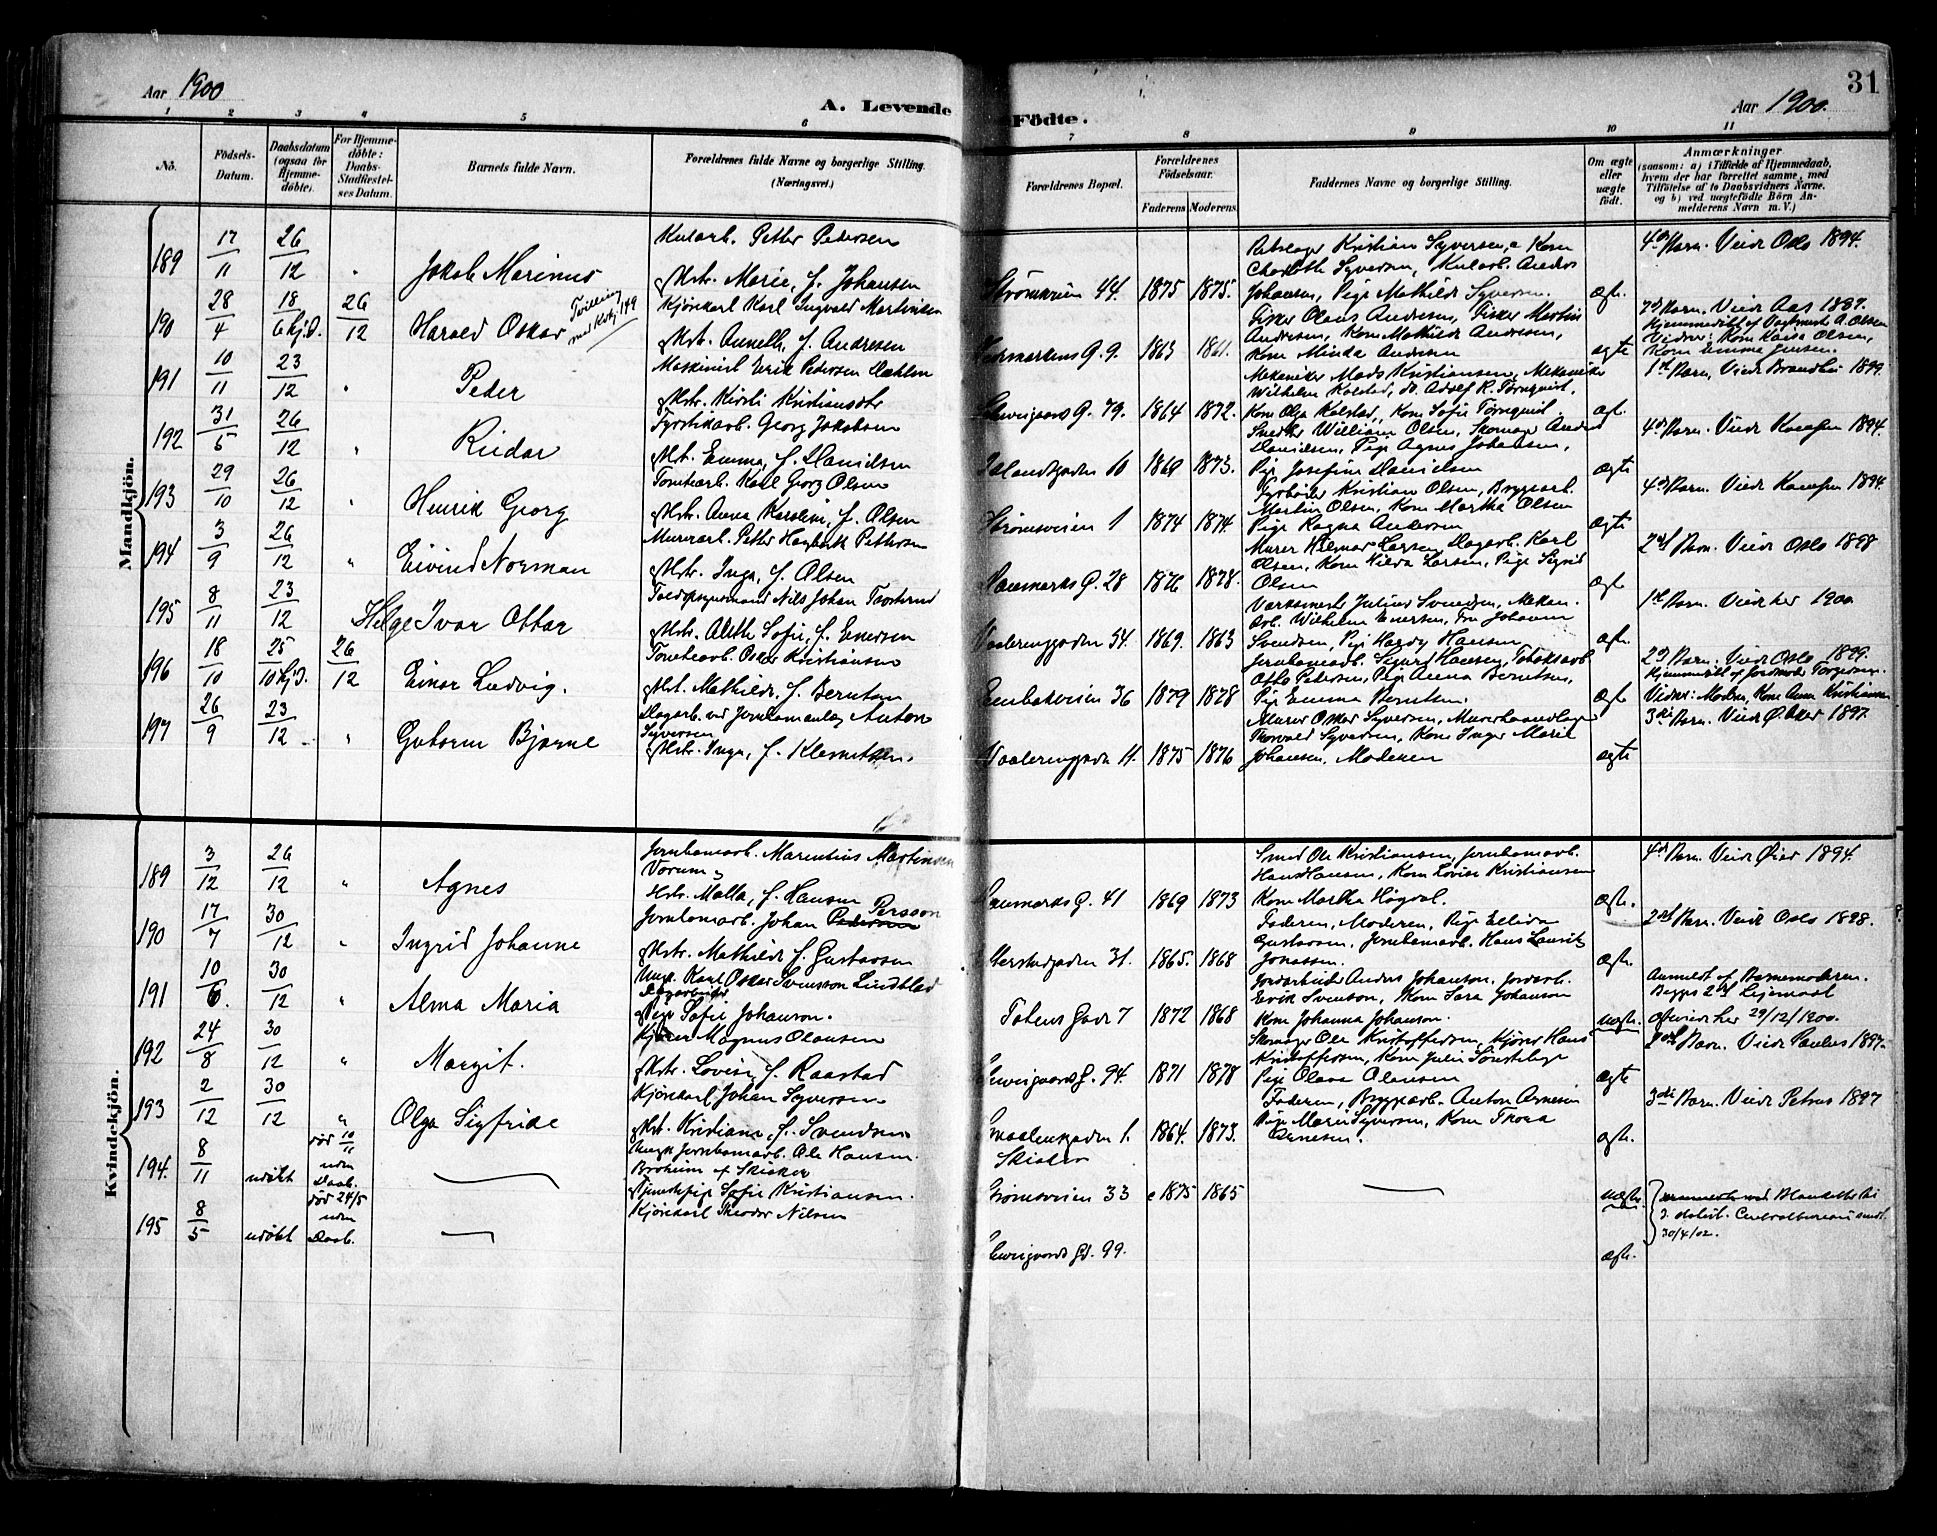 Aar 1900
A. Levende
Fødte.
Aar 1900.
31
1 2 3 4 5 6 7 8 9 10 11
No.
Fødsels-
Datum.
Daabsdatum
(ogsaa for
Hjemme-
døbte).
For Hjemme-
døbte:
Daabs-
Stadfæstel-
ses Datum.
Barnets fulde Navn.
Forældrenes fulde Navne og borgerlige Stilling.
(Næringsvei.)
Forældrenes Bopæl.
Forældrenes
Fødselsaar.
Faderens. Moderens.
Faddernes Navne og borgerlige Stilling.
Om ægte
eller
uægte
født.
Anmærkninger
(saasom: a) i Tilfælde af Hjemmedaab,
hvem der har forrettet samme, med
Tilføielse af to Daabsvidners Navne.
og b) ved uægtefødte Børn An-
melderens Navn m. V.)
Mandkjön.
189 17/11 26/12 " Jakob Marinus
Kularb. Petter Pedersen
Hstr. Marie, f. Johansen
Strömsveien 44. 1875 1875.
Kristian Syversen, Kone
Charlotte Syversen, Kularb. Anders
Johansen, Pige Mathilde Syversen.
ægte.
4de Barn. Viede Oslo 1894.
190 28/4 18/6 hjd. 26/12 Harald Oskar
Tvilling
med Kvkj. 149
Kjörekarl Karl Ingvald Martinsen
Hstr. Annette, f. Andresen
G. 9. 1863 1861.
Fisker Olaus Andresen, Fisker Martin
Andersen, Kone Mathilde Andresen,
Kone Minda Andersen
ægte
7de Barn. Viede Aas 1887.
Hjemmedöbt af A. Olsen
Vidner: Kone Kaisa Olsen,
Kone Emma Jensen.
191 10/11 23/12 " Peder
Maskinist Erik Pedersen Dahlen
Hstr. Kirsti Kristiansdtr
Schweigaards G. 79. 1864 1872.
Mekaniker Mads Kristiansen, Mekaniker
Wilhelm Kolstad, do. Adolf R. Törnquist.
Kone Olga Kolstad, Kone Sofie Törnquist.
ægte.
1ste Barn, Viede Brandbu 1899.
192 31/5 26/12 " Reidar
Fyrstikarb. Georg Jakobsen
Hstr. Emma, f. Danielsen
Jolandsgaden 10 1869 1873.
Snedker William Olsen, Skomager Anders
Danielsen, Pige Agnes Johansen,
Pige Josefine Danielsen
ægte
4de Barn. Viede Kampen 1894.
193 29/10 26/12 " Henrik Georg
Tomtearb. Karl Georg Olsen
Hstr. Anna Karoline, f. Olsen
Strömsveien 1 1874 1874.
Fyrböder Kristian Olsen, Bryggearb.
Martin Olsen, Kone Martha Olsen
Pige Ragna Andersen
ægte
4de Barn. Viede Kampen 1894.
194 3/9 26/12 " Eivind Norman
Murerarb. Petter Pettersen
Hstr. Inga, f. Olsen
Danmarks G. 28 1876 1878.
Murer Hilmar Larsen, Dagarb. Karl
Olsen, Kone Hilda Larsen, Pige Sigrid
Olsen
ægte
2det Barn. Viede Oslo 1898
195 8/11 23/12 Helge Ivar Ottar
Nils Johan
Hstr. Alette Sofie, f. Enersen
Vaalerenggaden 54. 1869. 1863
Værksmester Julius Svendsen, Mekan.
Arb. Wilhelm Enersen, Fru Johanna
Svendsen, Pige Hansen
ægte.
1ste Barn. Viede her 1900.
196 18/10 25/10 hjd. 26/12 Einar Ludvig.
Tomtearb. Oskar Kristiansen
Hstr. Mathilde, f. Berntsen
Enebakveien 36 1879 1878
Jernbanearb. Sigurd Hansen, Tobaksarb
Otto Petersen, Pige Anna Berntsen,
Pige Emma Berntsen.
ægte
2det Barn. Viede Oslo 1899.
Hjemmedöbt af Jordmoder Torgersen.
Vidner: Moderen, Kone Anna Kristiansen
197 26/9 23/12 " Guttorm Bjarne
Dagarb. ved Jernbaneanlæg Anton
Syversen
Hstr. Inga, f. Klemetsen.
Vaalerenggaden 11. 1875 1876
Murer Oskar Syversen, Murerhaandlanger
Thorvald Syversen, Kone Inger Marie
Johansen, Moderen
ægte
3die Barn. Viede 1897.
Kvindekjön.
189 3/12 26/12 " Agnes
Jernbanearb. Marentius Martinsen
Vorum
Hstr. Malla, f. Hansen
Danmarks G. 41 1869 1873
Smed Ole Kristiansen, Jernbanearb.
Hans Hansen, Kone Lovise Kristiansen
Kone Martha Högvol.
ægte.
4de Barn. Viede Öier 1894.
190 17/7 30/12 " Ingrid Johanne
Jernbanearb. Johan Pedersen Persson
Hstr. Mathilde f. Gustavsen
31. 1865. 1868
Faderen, Moderen, Pige Ellida
Gustavsen, Jernbanearb. Hans Laurits
Jonassen.
ægte.
2det Barn. Viede Oslo 1898.
191 10/6. 30/12 " Alma Maria
Ungk. Karl Oskar Svensson Lindblad
Dagarbeider
Pige Sofie Johanson.
Totens Gade 7 1872 1868
Jordarbeider Anders Johanson, Jordarb.
Erik Svenson, Kone Sara Johanson
Kone Johanna Johanson.
uægte.
Anmeldt af Barnemoderen.
Begges 2det Leiermaal
Ægteviede her 29/12/1900.
192 24/8 30/12 " Margit.
Kjörer Magnus Olausen
Hstr. Lovise, f. Raastad
Schweigaards G. 94. 1871 1878
Skomager Ole Kristoffersen, Kjörer Hans
Kristoffersen, Kone Julie
Pige Olava Olausen
ægte
2det Barn. Viede Paulus 1897.
193 2/12 30/12 " Olga Sigfride
Kjörekarl Johan Syversen
Hstr. Kristiane, f. Svendsen
Smaalensgaden 1. 1864. 1873.
Faderen, Bryggearb. Anton Arnesen
Pige Marie Syversen, Kone Thora
Arnesen.
ægte.
3die Barn. Viede Petrus 1897
194. 8/11 udöbt död 10/11
uden
Daab.
Ungk. Jernbanearb. Ole Hansen
Broheim af Skiaker
Tjenestepige Sofie Kristiansen.
Skiaker
Strömsveien 33 c 1875 1865
uægte.
195 8/5 udöbt död 24/5
uden
Daab.
Kjörekarl Theodor Nilsen
Schweigaards Gd. 99.
ægte.
statist. Centralbureau
30/4/02.